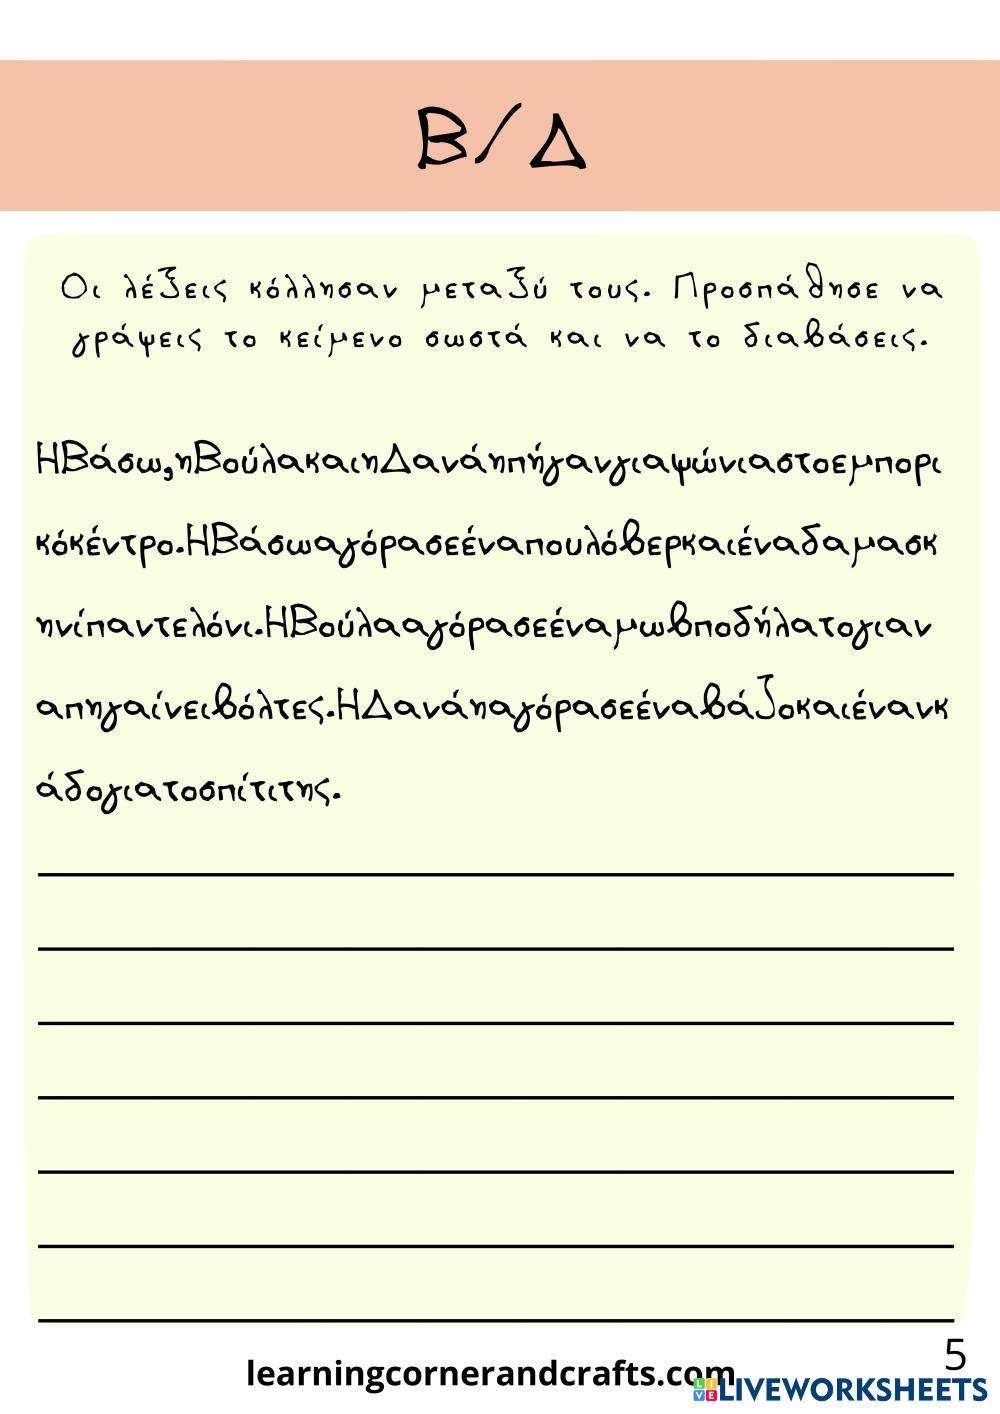 Β/Δ
Οι λέξεις κόλλησαν μεταξύ τους. Προσπάθησε να
γράψεις το κείμενο σωστά και να το διαβάσεις.
ΗΒάσω,ηΒούλακαιηΔανάηπήγανγιαψώνιαστοεμπορι
κόκέντρο.ΗΒάσωαγόρασεέναπουλόβερκαιέναδαμασκ
ηνίπαντελόνι.ΗΒούλααγόρασεέναμωβποδήλατογιαν
απηγαίνειβόλτες.ΗΔανάηαγόρασεέναβάζοκαιένανκ
άδογιατοσπίτιτης.
learningcornerandcrafts.com
5
LIVEWORKSHEETS